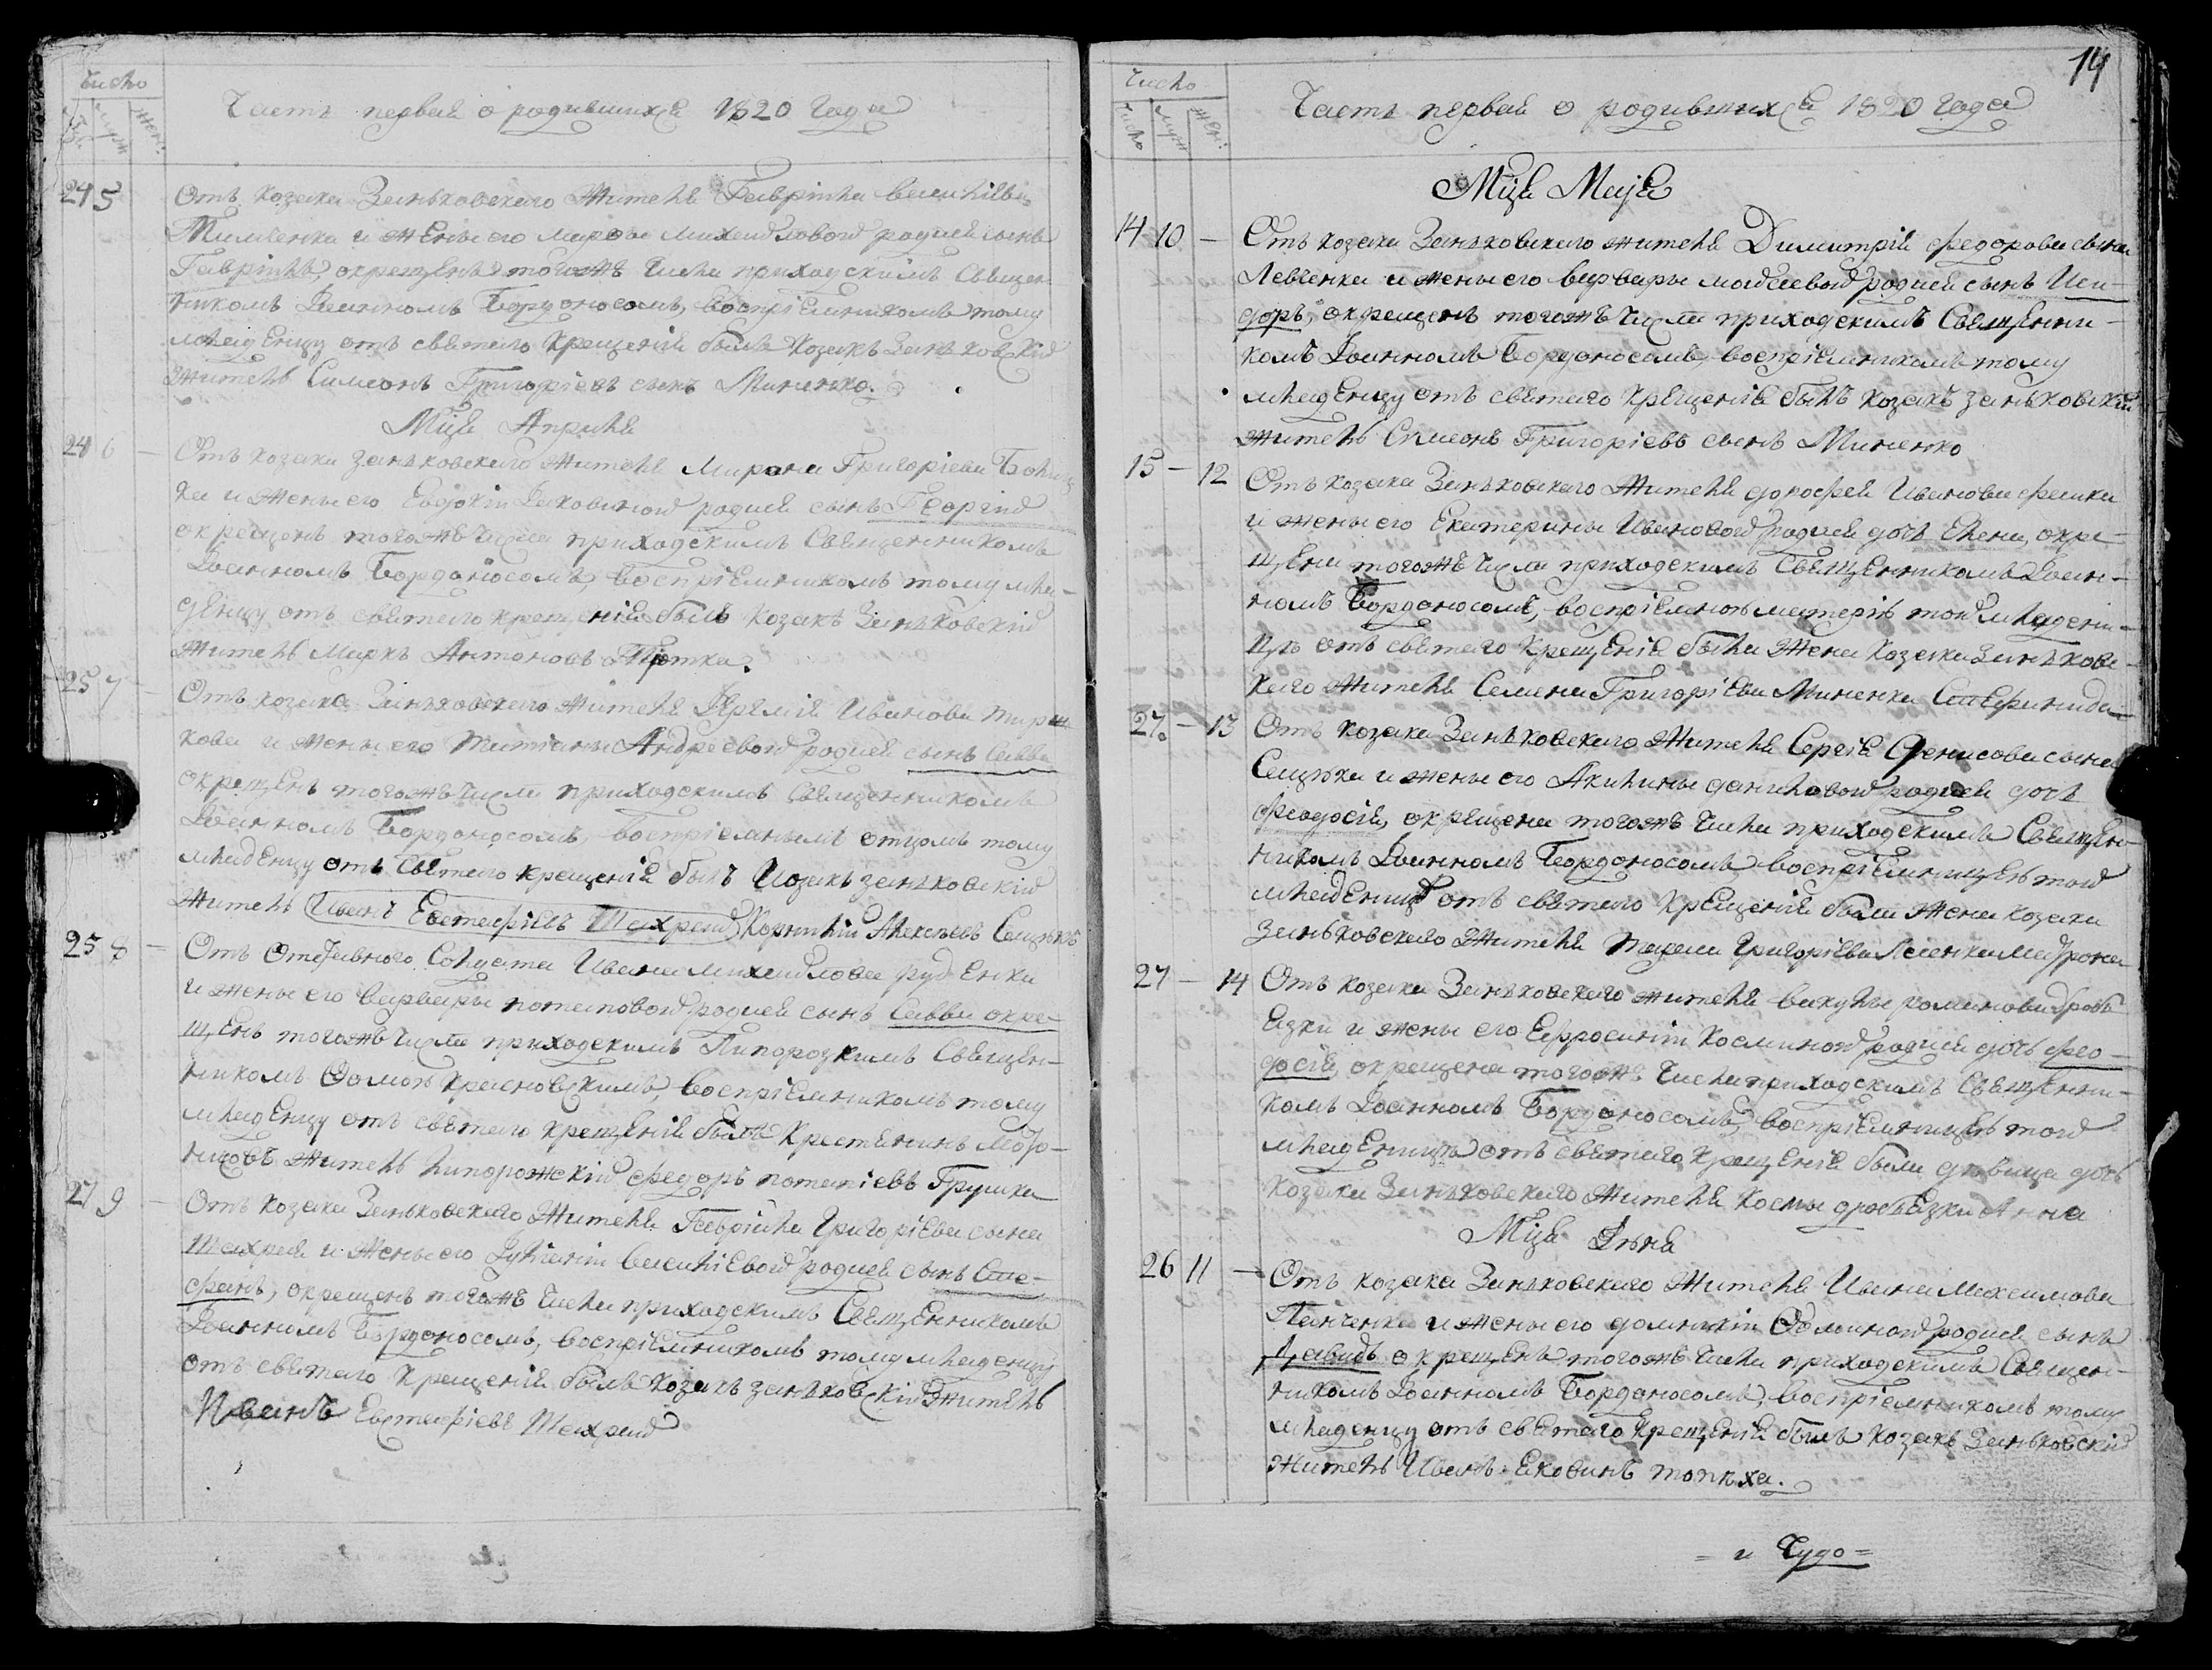 Число
Часть первая о родившихся 1820 года
24 5 Отъ козака Зеньковскаго жителя Гавріила Василіева
и жены его Марфы Михайловой родися сынъ
Гавріилъ, окрещенъ тогожъ числа приходскимъ Священ-
никомъ Іоанномъ Бордоносомъ, воспріемникомъ тому
младенцу отъ святаго крещенія былъ козакъ Зеньковскій
житель Симеонъ Григоріевъ сынъ Миненко.
Мца Априля
24 6 – Отъ козака Зеньковскаго жителя Мирона Григоріева
и жены его Евдокіи Яковиной родися сынъ Георгій
окрещенъ тогожъ числа приходскимъ Священникомъ
Іоанномъ Бордоносомъ, воспріемникомъ тому мла-
денцу отъ святаго крещенія былъ козакъ Зеньковскій
житель Маркъ Антоновъ
25 7 – Отъ козака Зеньковскаго жителя Ивановa
и жены его Татіаны Андреевой родися сынъ Савва
окрещенъ тогожъ числа приходскимъ Священникомъ
Іоанномъ Бордоносомъ, воспріемнымъ отцомъ тому
младенцу отъ святаго крещенія былъ козакъ зеньковскій
житель Иванъ Евстафіевъ Шахрай Корнилій Алексѣевъ
25 8 – Отъ отставного Солдата Ивана Михайлова Руденка
и жены его Варвары Потаповой родися сынъ Савва окре-
щенъ тогожъ числа приходскимъ Священ-
никомъ Фомою Красновскимъ, воспріемникомъ тому
младенцу отъ святаго крещенія былъ Крестьянинъ
житель федоръ Потапіевъ Грушка
27 9 – Отъ козака Зеньковскаго жителя Гавріила Григоріева сына
Шахрая и жены его Іуліаніи Василіевой родися сынъ Сте-
фанъ, окрещенъ тогожъ числа приходскимъ Священникомъ
Іоанномъ Бордоносомъ, воспріемникомъ тому младенцу
отъ святаго Крещенія былъ козакъ зеньковскій житель
Иванъ Евстафіевъ Шахрай
14
Число
Число муж жен:
Часть первая о родившихся 1820 года
Мца Маја
14 10 – Отъ козака Зеньковскаго жителя Димитрія федорова сына
Левченка и жены его Варвары Моисеевой родися сынъ Иси-
доръ, окрещенъ тогожъ числа приходскимъ Священни-
комъ Іоанномъ Бордоносомъ, воспріемникомъ тому
младенцу отъ святаго крещенія былъ козакъ зеньковскій
житель Симеонъ Григоріевъ сынъ Миненко
15 – 12 Отъ козака Зеньковскаго жителя дорофея Иванова
и жены его Екатерины Ивановой родися дочь Елена, окре-
щена тогожъ числа приходскимъ Священникомъ Іоан-
номъ Бордоносомъ, воспріемною матерію той младени-
цѣ отъ святаго крещенія была жена козака Зеньковс-
каго жителя Семена Григоріева Миненка Стефанида
27. – 13 Отъ козака Зеньковскаго жителя Сергія Денисова сына
и жены его Акилины даниловой родися дочь
феодосія, окрещена тогожъ числа приходскимъ Священ-
никомъ Іоанномъ Бордоносомъ воспріемницею той
младеницѣ отъ святаго крещенія была жена козака
зеньковскаго жителя Григоріева
27 – 14 Отъ козака Зеньковскаго жителя Вакулы романова дробъ
язки и жены его Ефросиніи Косминой родися дочь фео-
досія, окрещена тогожъ числа приходскимъ Священни-
комъ Іоанномъ Бордоносомъ, воспріемницею той
младеницѣ отъ святаго крещенія была дѣвица дочь
козака Зеньковскаго жителя Космы дробъязки Анна
Мца Іюня
26 11 – Отъ козака Зеньковскаго жителя Ивана Максимова
Панченка и жены его домникіи родися сынъ
Давидъ окрещенъ тогожъ числа приходскимъ Священ-
никомъ Іоанномъ Бордоносомъ, воспріемникомъ тому
младенцу отъ святаго крещенія былъ козакъ Зеньковскій
житель Иванъ Яковинъ топѣха.
= и Чудо =